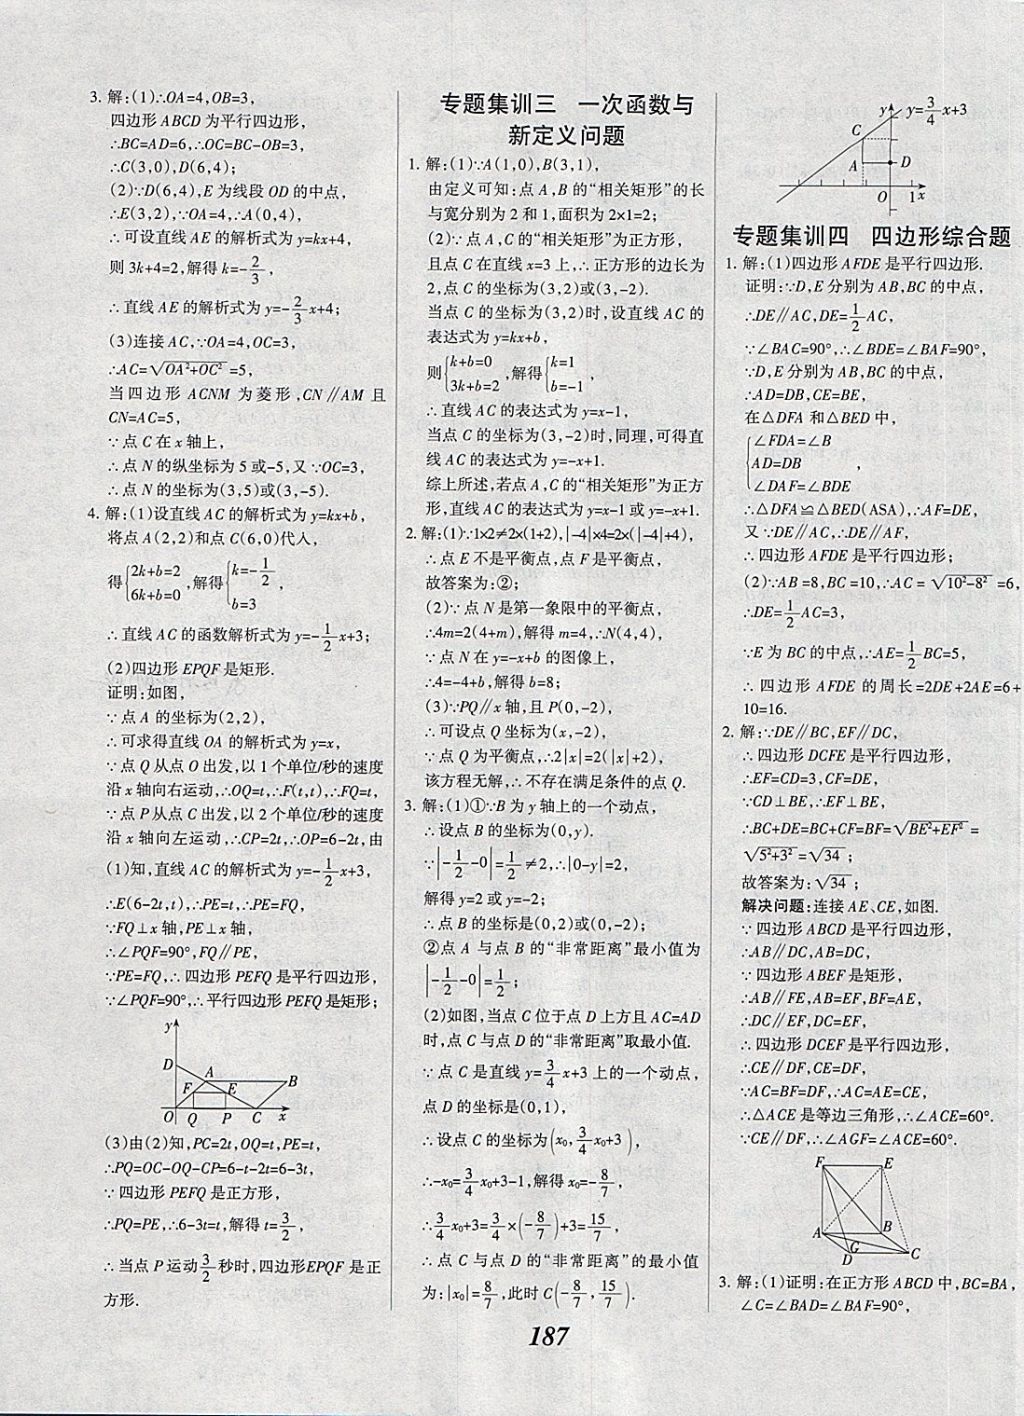 3. 解:(1)∴OA=4,OB=3,
四边形 ABCD 为平行四边形,
∴BC=AD=6,∴OC=BC-OB=3,
∴C(3,0),D(6,4);
(2)∵D(6,4),E 为线段 OD 的中点,
∴E(3,2),∵OA=4,∴A(0,4),
∴可设直线 AE 的解析式为 y=kx+4,
则 3k+4=2,解得 k=-2/3,
∴直线 AE 的解析式为 y=-2/3x+4;
(3)连接 AC,∵OA=4,OC=3,
∴AC=√(OA²+OC²)=5,
当四边形 ACNM 为菱形,CN∥AM 且
CN=AC=5,
∵点 C 在 x 轴上,
∴点 N 的纵坐标为 5 或-5,又∵OC=3,
∴点 N 的坐标为(3,5)或(3,-5).
4. 解:(1)设直线 AC 的解析式为 y=kx+b,
将点 A(2,2)和点 C(6,0)代人,
得{2k+b=2
6k+b=0,解得{k=-1/2
b=3,
∴直线 AC 的函数解析式为 y=-1/2x+3;
(2)四边形 EPQF 是矩形.
证明:如图,
∵点 A 的坐标为(2,2),
∴可求得直线 OA 的解析式为 y=x,
∵点 Q 从点 O 出发,以 1 个单位/秒的速度
沿 x 轴向右运动,∴OQ=t,∴F(t,t),∴FQ=t,
∵点 P 从点 C 出发,以 2 个单位/秒的速度
沿 x 轴向左运动,∴CP=2t,∴OP=6-2t,由
(1)知,直线 AC 的解析式为 y=-1/2x+3,
∴E(6-2t,t),∴PE=t,∴PE=FQ,
∵FQ⊥x 轴,PE⊥x 轴,
∴∠PQF=90°,FQ∥PE,
∵PE=FQ,∴四边形 PEFQ 是平行四边形,
∵∠PQF=90°,∴平行四边形 PEFQ 是矩形;
y
D
A
B
F
E
O
Q
P
C
x
(3)由(2)知,PC=2t,OQ=t,PE=t,
∴PQ=OC-OQ-CP=6-t-2t=6-3t,
∵四边形 PEFQ 是正方形,
∴PQ=PE,∴6-3t=t,解得 t=3/2,
∴当点 P 运动3/2秒时,四边形EPQF 是正
方形.
专题集训三 一次函数与
新定义问题
1. 解:(1)∵A(1,0),B(3,1),
由定义可知:点 A,B 的“相关矩形”的长
与宽分别为 2 和 1,面积为 2×1=2;
(2)∵点 A,C 的“相关矩形”为正方形,
且点 C 在直线 x=3 上,∴正方形的边长为
2,点 C 的坐标为(3,2)或(3,-2).
当点 C 的坐标为(3,2)时,设直线 AC 的
表达式为 y=kx+b,
则{k+b=0
3k+b=2,解得{k=1
b=-1,
∴直线 AC 的表达式为 y=x-1,
当点 C 的坐标为(3,-2)时,同理,可得直
线 AC 的表达式为 y=-x+1.
综上所述,若点 A,C 的“相关矩形”为正方
形,直线 AC 的表达式为 y=x-1 或 y=-x+1.
2. 解:(1)∵1×2≠2×(1+2),|-4|×4=2×(|-4|+4),
∴点 E 不是平衡点,点 F 是平衡点,
故答案为:②;
(2)∵点 N 是第一象限中的平衡点,
∴4m=2(4+m),解得 m=4,∴N(4,4),
∵点 N 在 y=-x+b 的图像上,
∴4=-4+b,解得 b=8;
(3)∵PQ∥x 轴,且 P(0,-2),
∴可设点 Q 坐标为(x,-2),
∵点 Q 为平衡点,∴2|x|=2(|x|+2),
该方程无解,∴不存在满足条件的点 Q.
3. 解:(1)①∵B 为 y 轴上的一个动点,
∴设点 B 的坐标为(0,y).
∵|-1/2-0|=1/2≠2,∴|0-y|=2,
解得 y=2 或 y=-2;
∴点 B 的坐标是(0,2)或(0,-2);
②点 A 与点 B 的“非常距离”最小值为
|-1/2-0|=1/2;
(2)如图,当点 C 位于点 D 上方且 AC=AD
时,点 C 与点 D 的“非常距离”取最小值.
∵点 C 是直线 y=3/4x+3 上的一个动点,
点 D 的坐标是(0,1),
∴设点 C 的坐标为(x₀,3/4x₀+3),
∴-x₀=3/4x₀+3-1,解得 x₀=-8/7,
∴3/4x₀+3=3/4×(-8/7)+3=15/7,
∴点 C 与点 D 的“非常距离”的最小值
为:|x₀|=8/7,此时 C(-8/7,15/7).
y
y=3/4x+3
C
A
D
O
1
x
专题集训四 四边形综合题
1. 解:(1)四边形 AFDE 是平行四边形.
证明:∵D,E 分别为 AB,BC 的中点,
∴DE∥AC,DE=1/2AC,
∵∠BAC=90°,∴∠BDE=∠BAF=90°,
∵D,E 分别为 AB,BC 的中点,
∴AD=DB,CE=BE,
在△DFA 和△BED 中,
{∠FDA=∠B
AD=DB
∠DAF=∠BDE,
∴△DFA≌△BED(ASA),∴AF=DE,
又∵DE∥AC,∴DE∥AF,
∴四边形 AFDE 是平行四边形;
(2)∵AB=8,BC=10,∴AC=√(10²-8²)=6,
∴DE=1/2AC=3,
∵E 为 BC 的中点,∴AE=1/2BC=5,
∴四边形 AFDE 的周长=2DE+2AE=6+
10=16.
2. 解:∵DE∥BC,EF∥DC,
∴四边形 DCFE 是平行四边形,
∴EF=CD=3,CF=DE,
∵CD⊥BE,∴EF⊥BE,
∴BC+DE=BC+CF=BF=√(BE²+EF²)=
√(5²+3²)=√34;
故答案为:√34;
解决问题:连接 AE、CE,如图.
∵四边形 ABCD 是平行四边形,
∴AB∥DC,AB=DC,
∵四边形 ABEF 是矩形,
∴AB∥FE,AB=EF,BF=AE,
∴DC∥EF,DC=EF,
∴四边形 DCEF 是平行四边形,
∴CE∥DF,CE=DF,
∵AC=BF=DF,∴AC=AE=CE,
∴△ACE 是等边三角形,∴∠ACE=60°.
∵CE∥DF,∴∠AGF=∠ACE=60°.
F
E
A
B
G
D
C
3. 解:(1)证明:在正方形 ABCD 中,BC=BA,
∠C=∠BAD=∠BAF=90°,
187